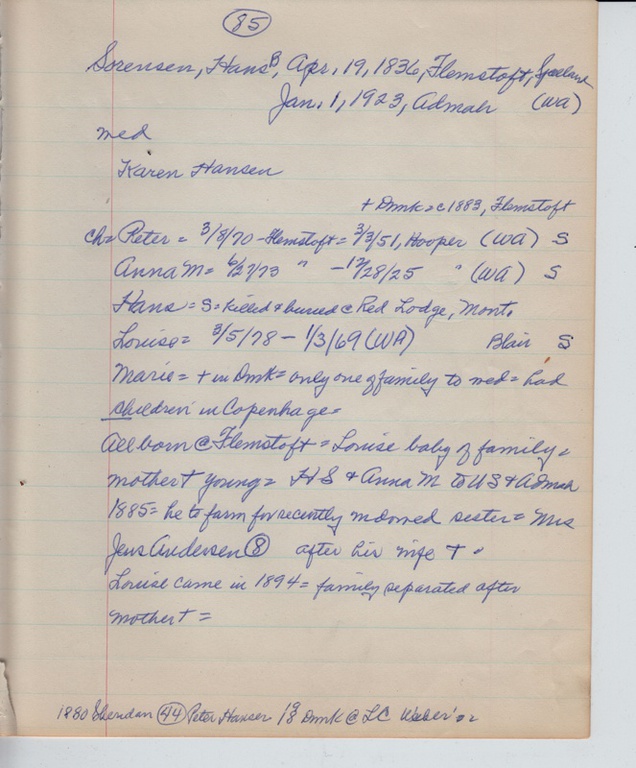 85
Sorensen, Hans B, Apr. 19, 1836, Flemstoft, Sjaeland
Jan. 1, 1923, Admah (WA)
med
Karen Hansen
+ Dmk = c 1883, Flemstoft
ch = Peter = 3/8/70 - Flemstoft = 3/3/51, Hooper (WA) S
Anna M = 6/27/73 " - 12/28/25 " (WA) S
Hans = S = killed & buried @ Red Lodge, Mont.
Louise = 3/5/78 - 1/3/69 (WA) Blair S
Marie = + in Dmk = only one of family to med = had
children in Copenhage =
All born @ Flemstoft = Louise baby of family =
mother + young = HS & Anna M to US & Admah
1885 = he to farm for recently widowed sister = Mrs
Jens Andersen 8 after his wife + .
Louise came in 1894 = family separated after
mother + =
1880 Sheridan 44 Peter Hansen 19/18 Dmk @ LC Weber's